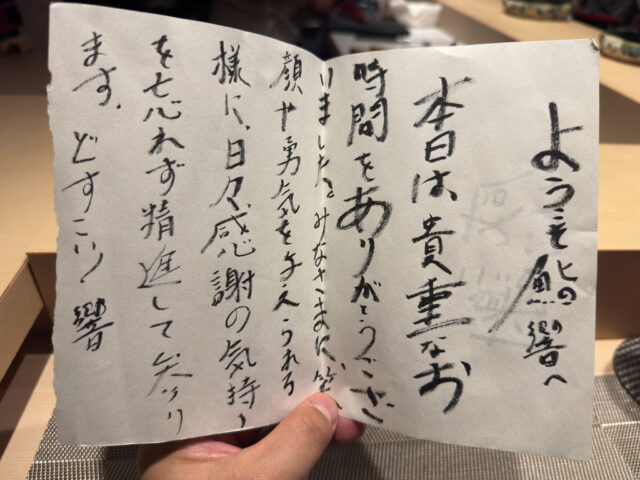 ようこそ鮨の響へ
本日は貴重なお
時間をありがとうござ
いました。みなさまに笑
顔や勇気を与えられる
様に、日々感謝の気持ち
を忘れず精進して参り
ます。どすこい! 響